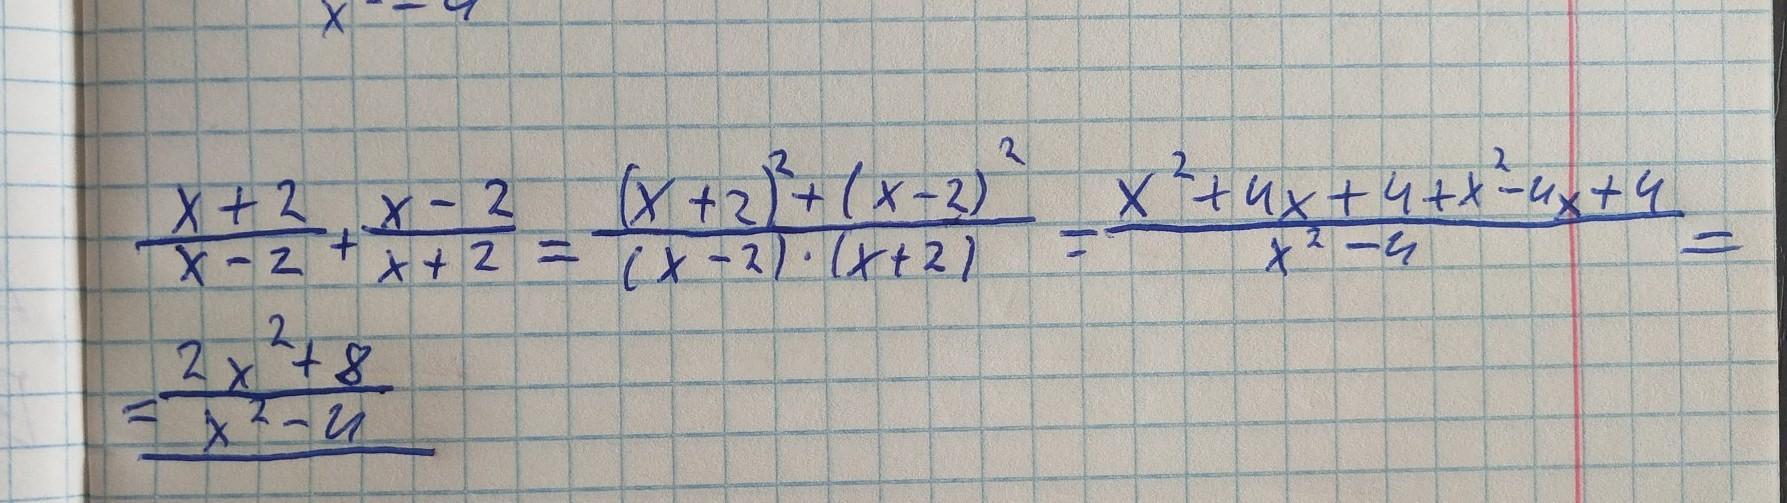 x² - 4
(x+2)/(x-2) + (x-2)/(x+2) = ((x+2)² + (x-2)²)/((x-2)·(x+2)) = (x² + 4x + 4 + x² - 4x + 4)/(x² - 4) =
= (2x² + 8)/(x² - 4)